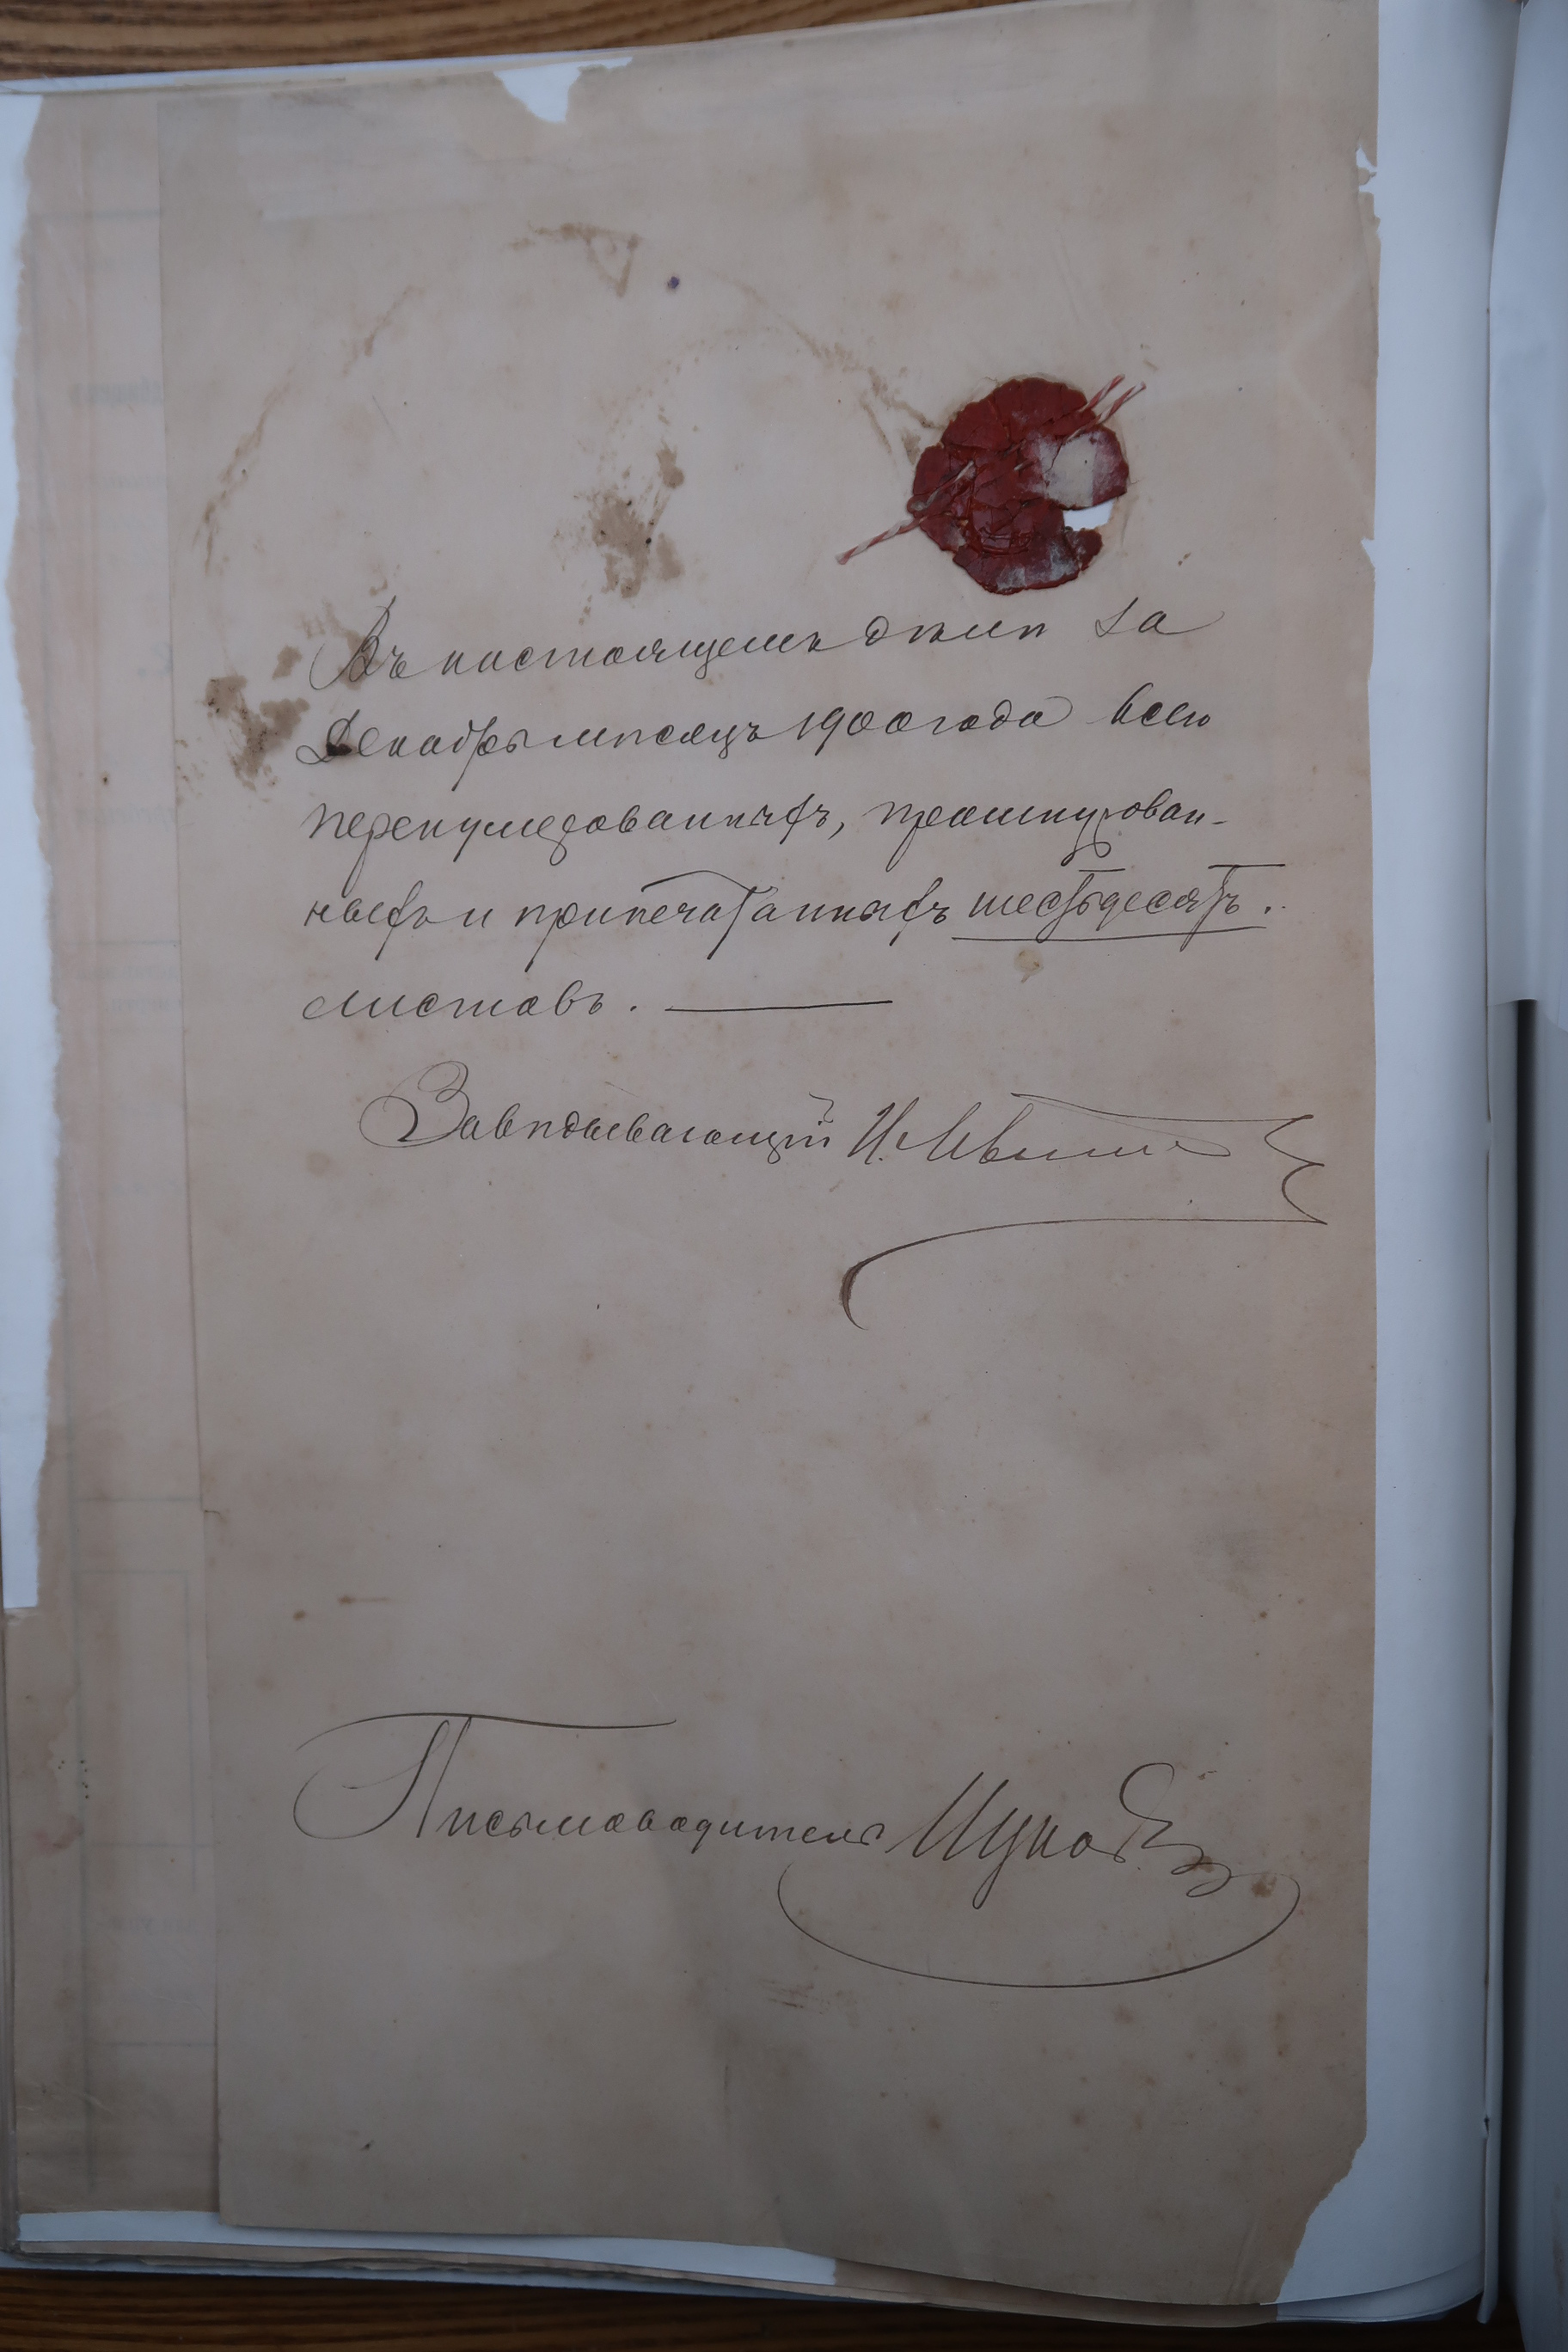 Въ настоящемъ дѣлѣ за
Декабрь мѣсяцъ 1900 года всего
перенумерованныхъ, прошнурован-
ныхъ и припечатанныхъ шестьдесятъ.
листовъ.
Завѣдывающій И.
Письмоводитель